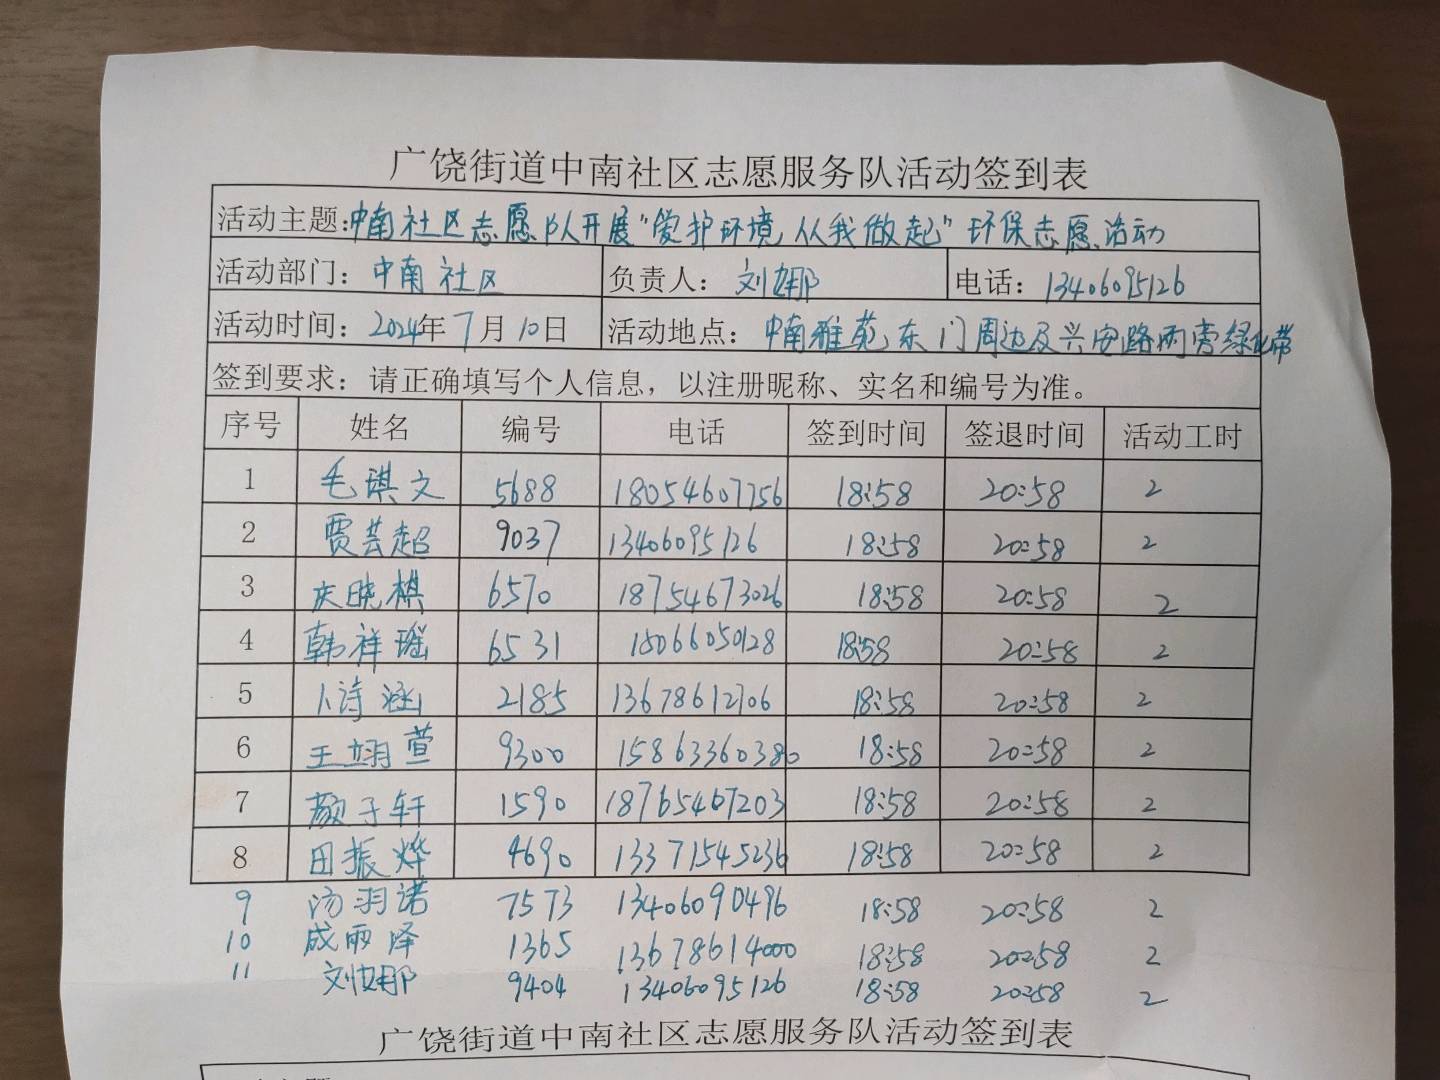 广饶街道中南社区志愿服务队活动签到表
活动主题:中南社区志愿队开展"爱护环境,从我做起"环保志愿活动
活动部门：中南社区 负责人：刘娜 电话：13406095126
活动时间：2024年7月10日 活动地点：中南雅苑东门周边及兴安路两旁绿化带
签到要求：请正确填写个人信息，以注册昵称、实名和编号为准。
序号 姓名 编号 电话 签到时间 签退时间 活动工时
1 毛琪文 5688 18054607756 18:58 20:58 2
2 贾芸超 9037 13406095126 18:58 20:58 2
3 庆晓棋 6570 18754673026 18:58 20:58 2
4 韩祥瑶 6531 15066050128 18:58 20:58 2
5 卜诗涵 2185 13678612706 18:58 20:58 2
6 王翊萱 9300 15863360380 18:58 20:58 2
7 颜子轩 1590 18765467203 18:58 20:58 2
8 田振烨 4690 13371545236 18:58 20:58 2
9 汤羽诺 7573 13406090496 18:58 20:58 2
10 成雨泽 1365 13678614000 18:58 20:58 2
11 刘娜 9404 13406095126 18:58 20:58 2
广饶街道中南社区志愿服务队活动签到表